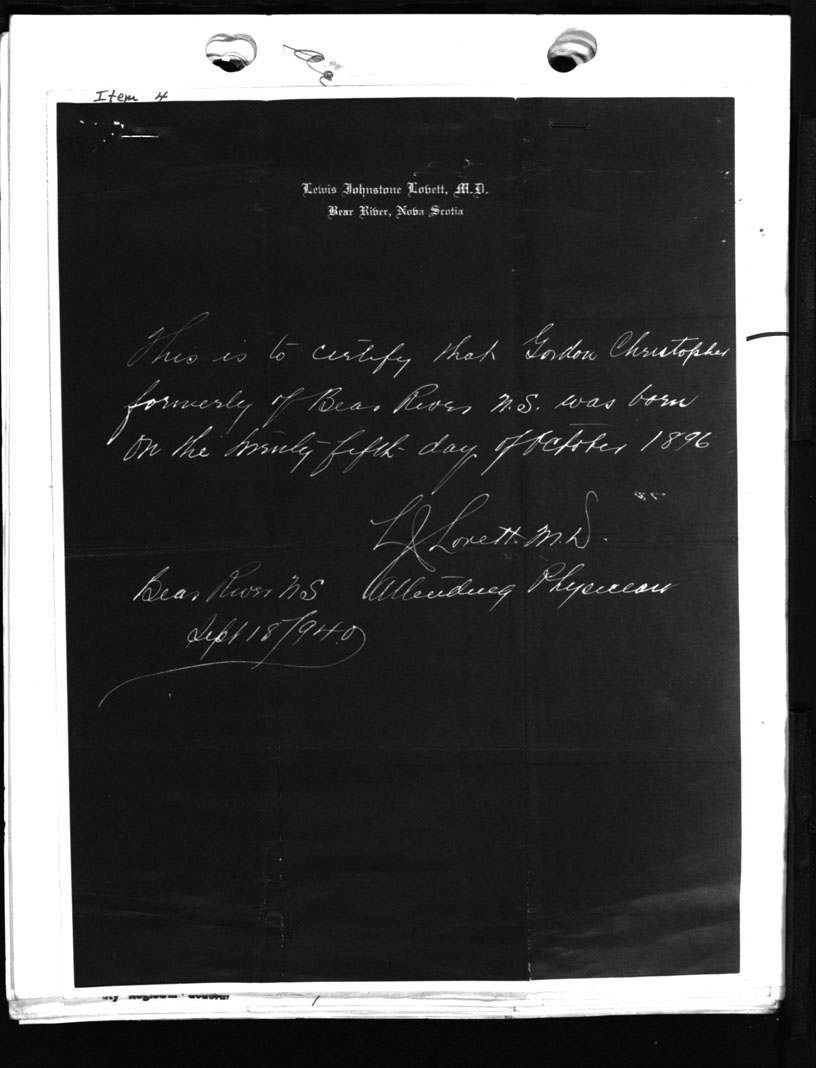 Item 4
Lewis Johnstone Lovett, M.D.
Bear River, Nova Scotia
This is to certify that Gordon Christopher
formerly of Bear River N.S. was born
on the twenty-fifth day of October 1896
LJ Lovett M.D.
Bear River N S Attending Physician
Sept 18/940